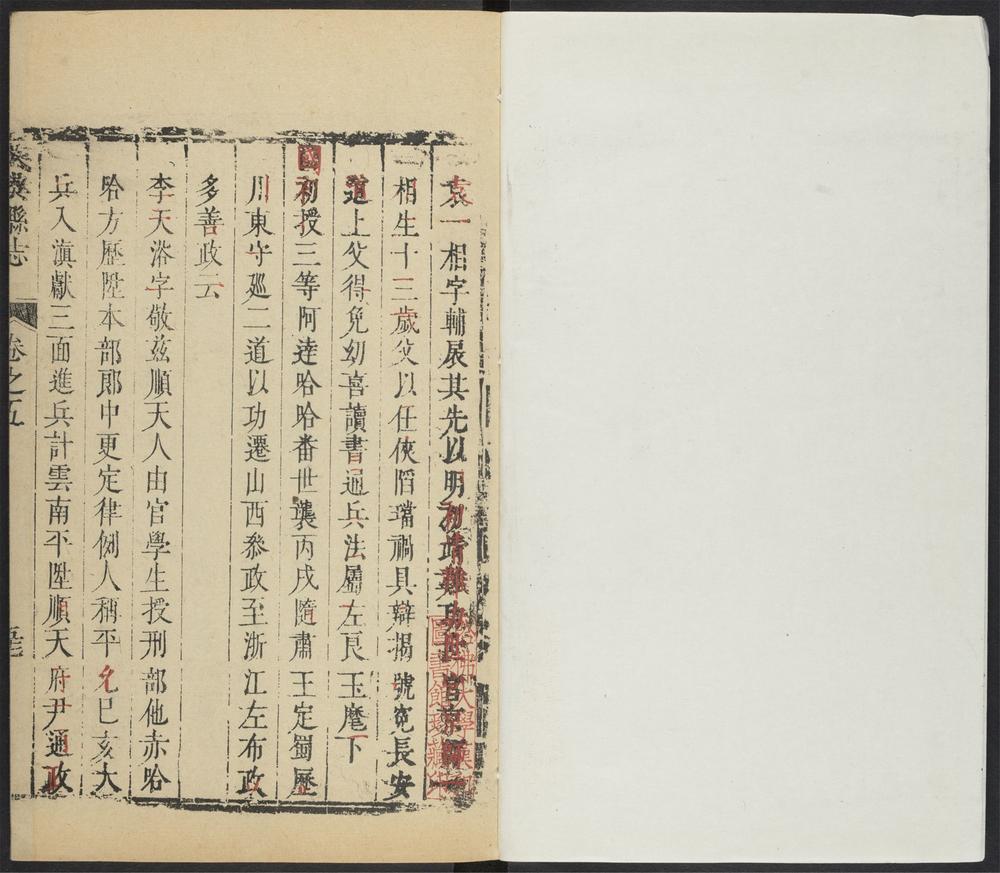 袁一相字輔宸其先以明初靖難功世官京師一
相生十三歲父以任俠陷璫禍具辯揭號寃長安
道上父得免幼喜讀書通兵法屬左良玉麾下
國初授三等阿達哈哈番世襲丙戌隨肅王定蜀歷
川東守廵二道以功遷山西叅政至浙江左布政
多善政云
李天浴字敬兹順天人由官學生授刑部他赤哈
哈方歷陞本部郎中更定律例人稱平允己亥大
兵入滇獻三面進兵計雲南平陞順天府尹通政
縣志 卷之五
哈佛大學漢和
圖書館珍藏印